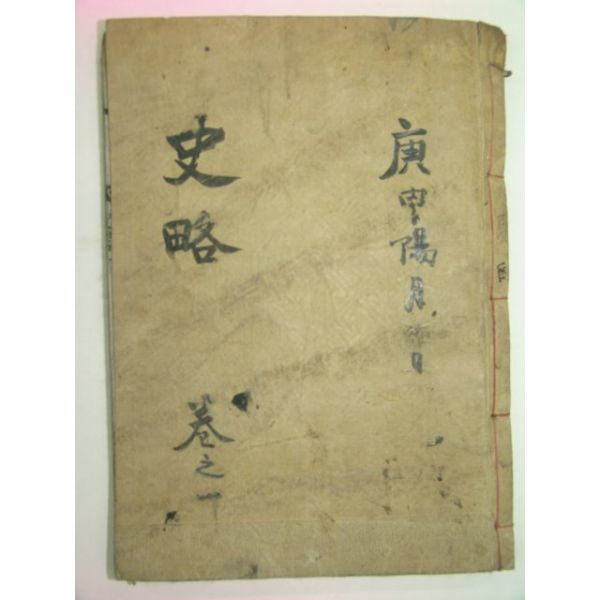 庚申陽月
史略
卷之一